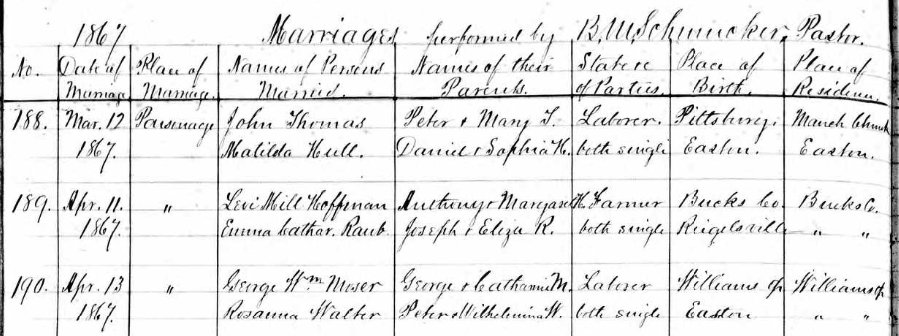 1867 Marriages performed by B. M. Schmucker, Pastor.
No. Date of Place of Names of Persons Names of their State &c Place of Place of
Marriage Marriage. Married. Parents. of Parties. Birth. Residence.
188. Mar. 12 Parsonage John Thomas Peter & Mary T. Laborer. Pittsburg. Mauch Chunk
1867. Matilda Hull. Daniel & Sophia H. both single Easton. Easton.
189. Apr. 11. " Levi Mill Hoffman Anthony & Margaret H. Farmer Bucks Co Bucks Co.
1867. Emma Cathar. Raub Joseph & Eliza R. both single Riegelsville " "
190. Apr. 13 " George Wm Moser George & Catharine M. Laborer Williams tp Williams tp
1867. Rosanna Walter Peter & Wilhelmina W. both single Easton " "